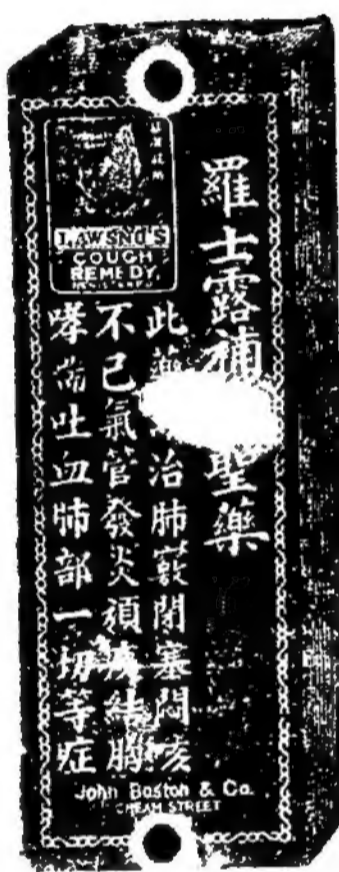 LAWSND'S
COUGH
REMEDY.
羅士露補聖藥
此藥治肺藪閉塞悶咳
不已氣管發炎頑痰結胸
哮喘吐血肺部一切等症
John Boston & Co.
CHEAM STREET